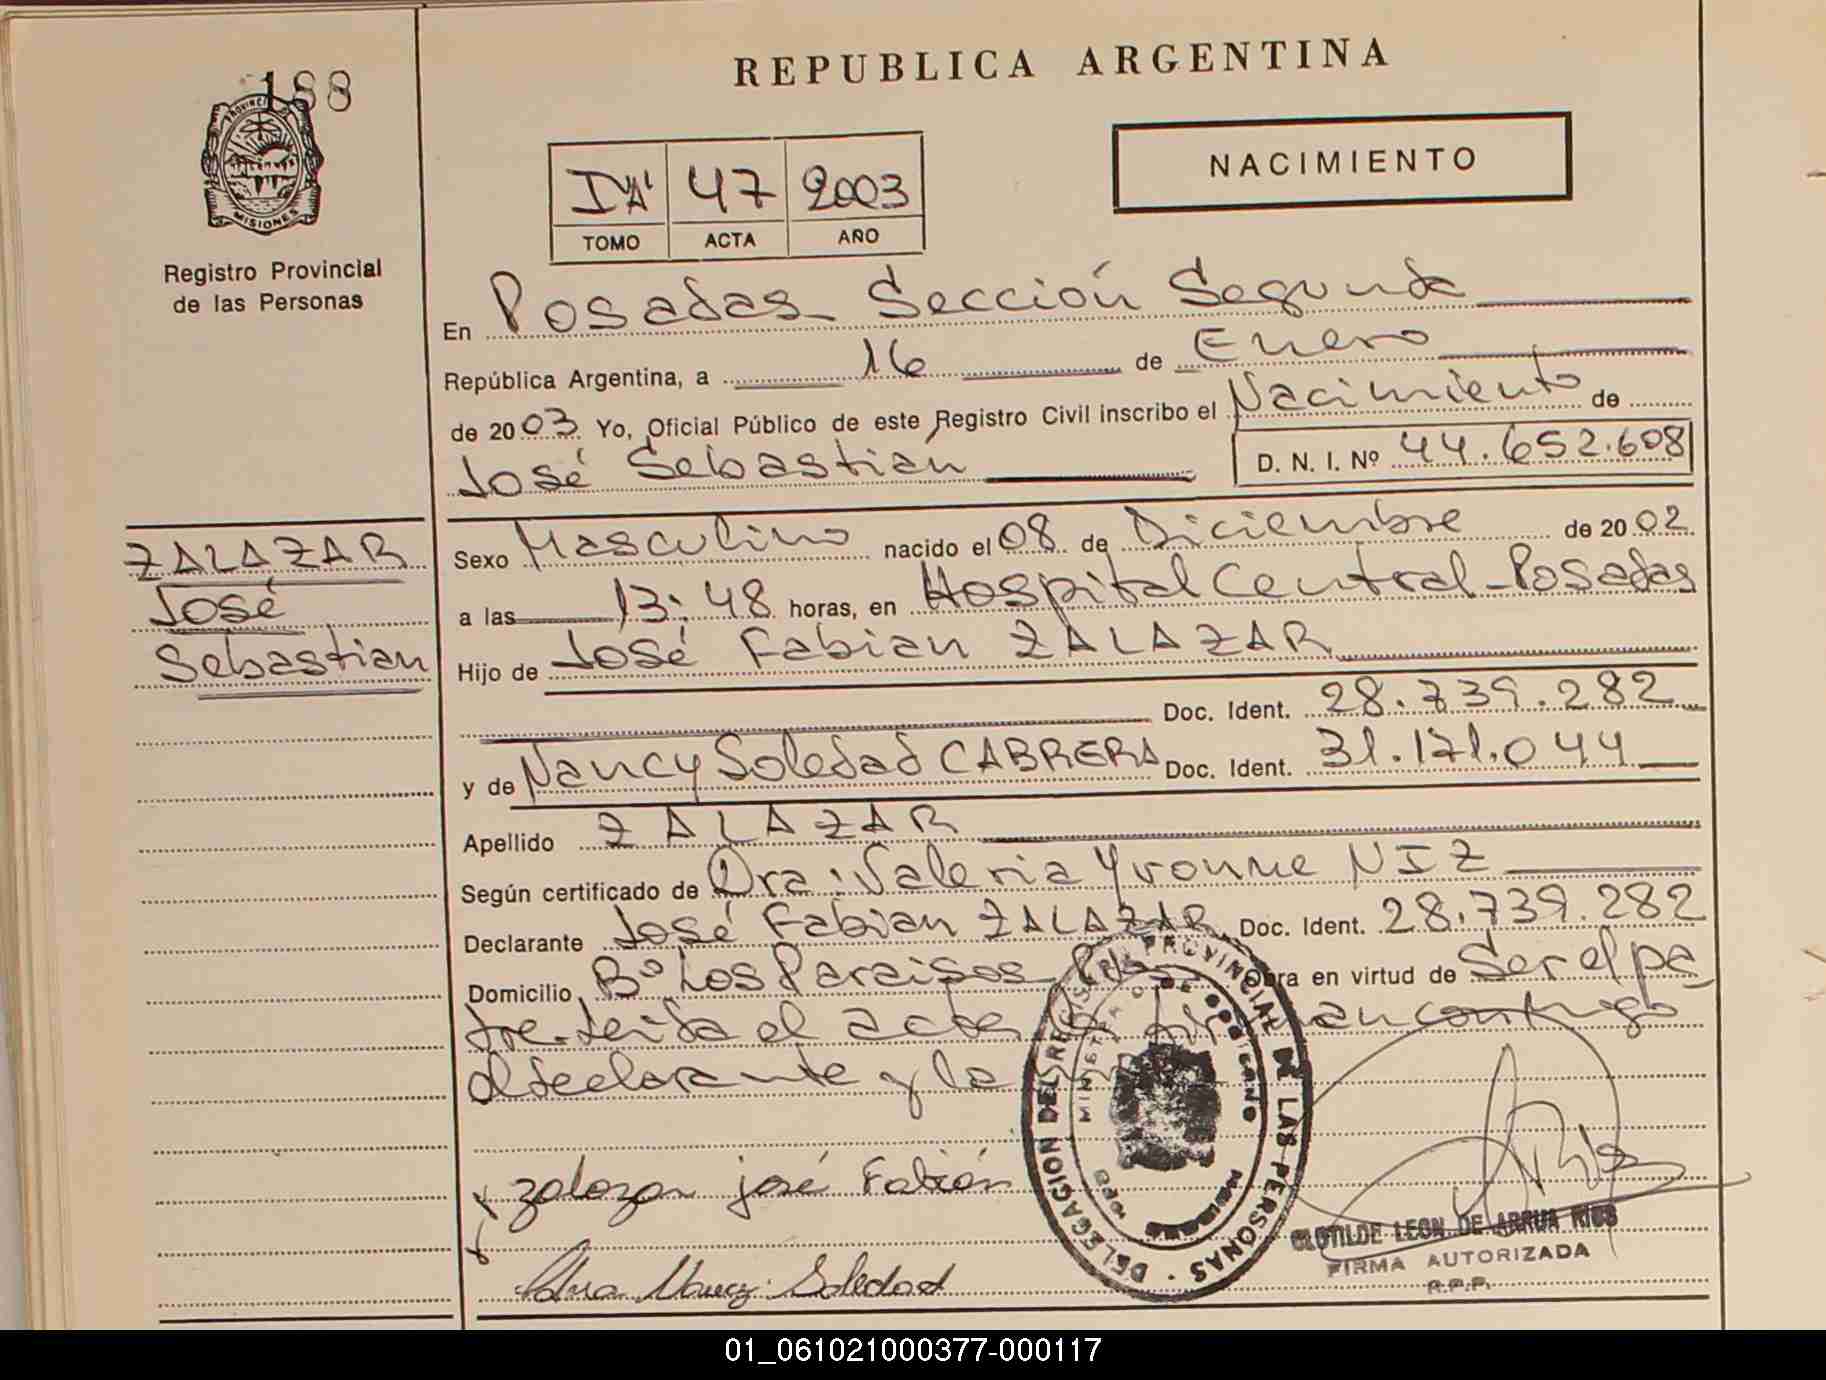 188
PROVINCIA DE MISIONES
Registro Provincial
de las Personas
REPUBLICA ARGENTINA
NACIMIENTO
I"A" 47 2003
TOMO ACTA AÑO
En Posadas Sección Segunda
República Argentina, a 16 de Enero
de 2003 Yo, Oficial Público de este Registro Civil inscribo el Nacimiento de
José Sebastian D. N. I. Nº 44.652.608
ZALAZAR
José
Sebastian
Sexo Masculino nacido el 08 de Diciembre de 2002
a las 13:48 horas, en Hospital Central-Posadas
Hijo de José Fabian ZALAZAR
Doc. Ident. 28.739.282
y de Nancy Soledad CABRERA Doc. Ident. 31.171.044
Apellido ZALAZAR
Según certificado de Dra: Valeria Yvonne NIZ
Declarante José Fabian ZALAZAR Doc. Ident. 28.739.282
Domicilio Bº Los Paraisos Pdas Obra en virtud de Ser el pa
dre. Leida el acta firman conmigo
el declarante y la
DELEGACION DEL REGISTRO PROVINCIAL DE LAS PERSONAS
MINISTERIO DE GOBIERNO
zalazar josé Fabián
Nancy Soledad
CLOTILDE LEON DE ARRUA RIOS
FIRMA AUTORIZADA
R.P.P.
01_061021000377-000117